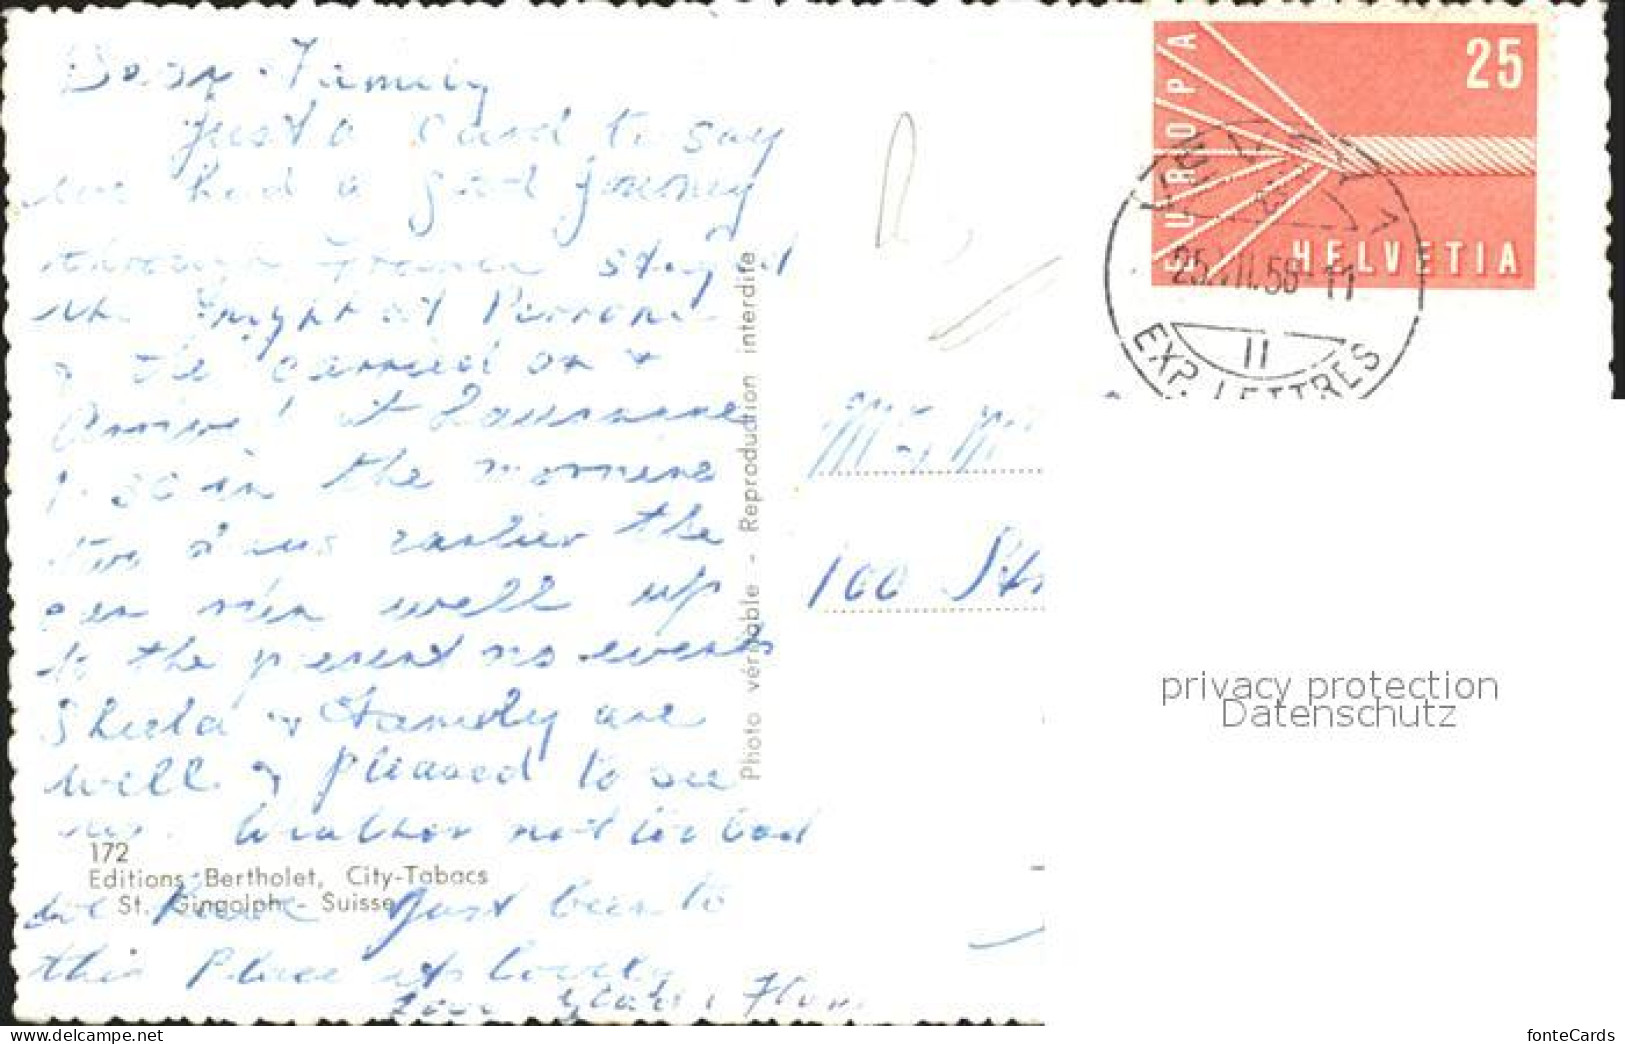 Dear Family
Just a Card to say
we had a good journey
through France stayed
the night at
& the carried on &
Arrived at Lausanne
1.30 in the morning
two days earlier the
well up
to the present no events
Shiela & Family are
well & pleased to see
us. Weather not too bad
we have just been to
this Place its lovely
Love
172
Editions Bertholet, City-Tabacs
St. Gingolph - Suisse
Photo véritable - Reproduction interdite
100
EUROPA
25
HELVETIA
25.VII.58-11
II
EXP. LETTRES
privacy protection
Datenschutz
fonteCards